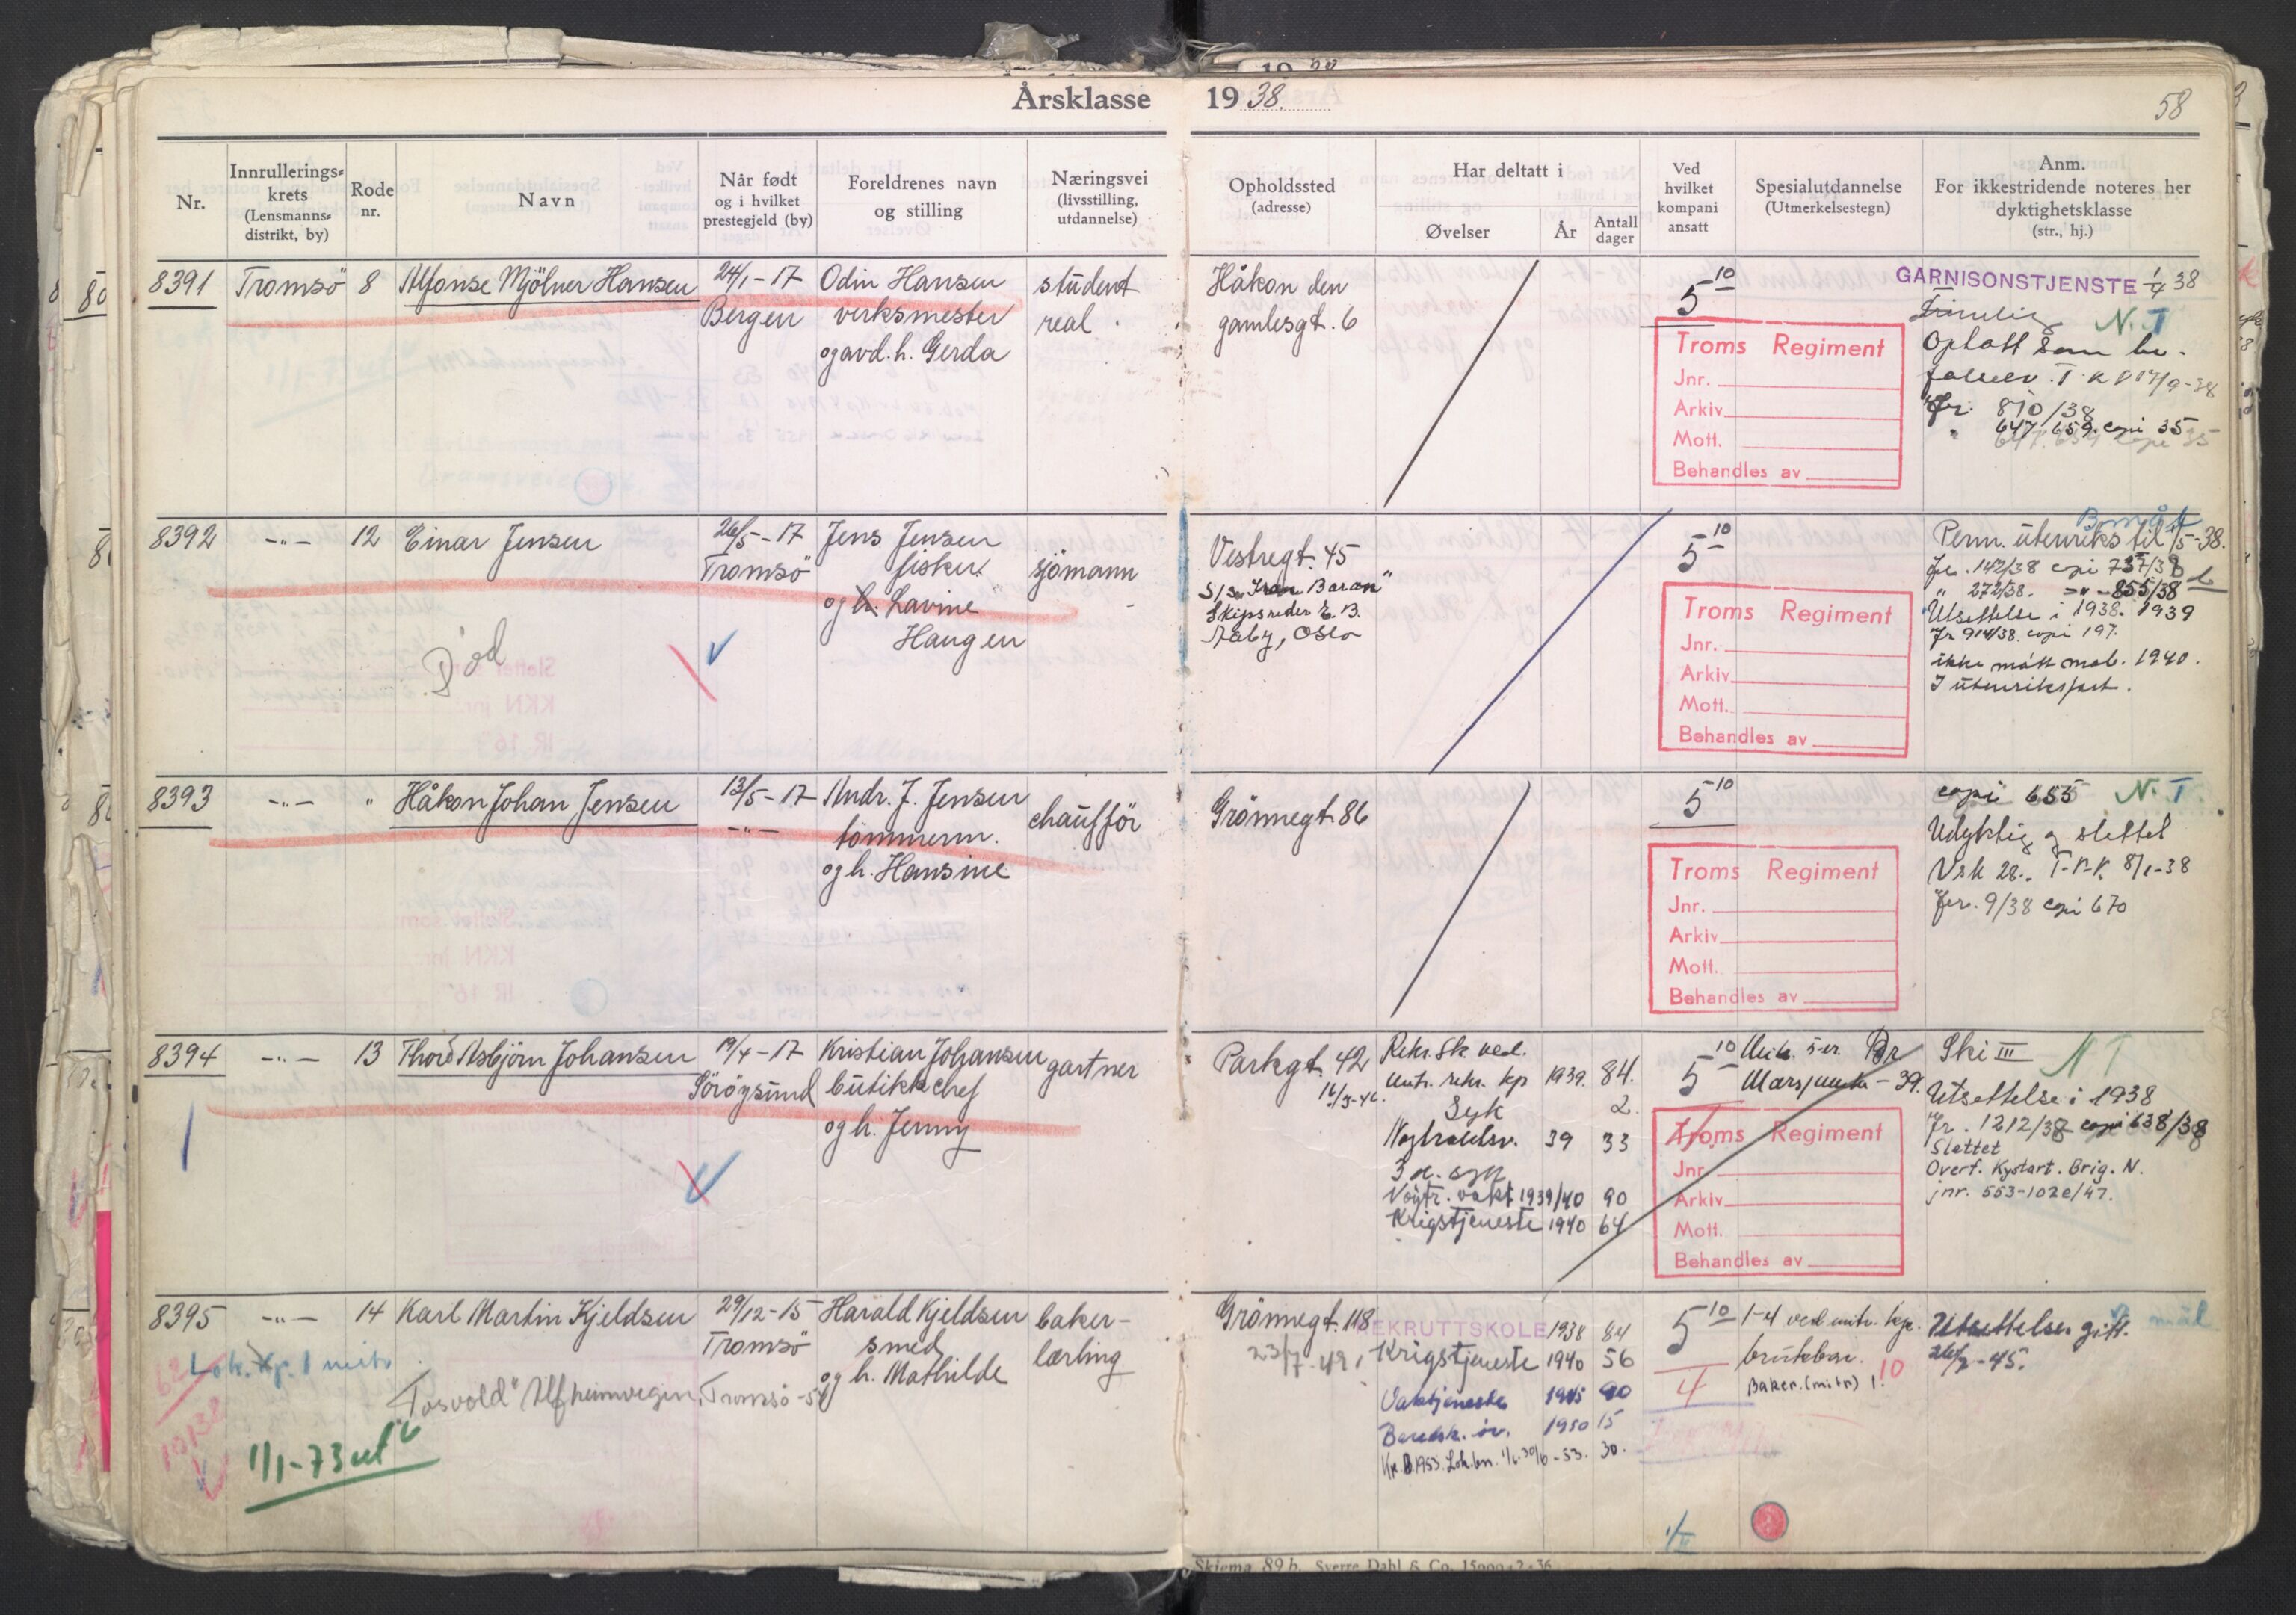 Årsklasse 1938.
58
Nr.
Innrullerings-
krets
(Lensmanns-
distrikt, by)
Rode
nr.
Navn
Når født
og i hvilket
prestegjeld (by)
Foreldrenes navn
og stilling
Næringsvei
(livsstilling,
utdannelse)
Opholdssted
(adresse)
Har deltatt i
Øvelser
År
Antall
dager
Ved
hvilket
kompani
ansatt
Spesialutdannelse
(Utmerkelsestegn)
Anm.
For ikkestridende noteres her
dyktighetsklasse
(str., hj.)
8391 Tromsö 8 Alfonse Mjölner Hansen
24/1-17
Bergen
Odin Hansen
verksmester
og avd. h. Gerda
student
real
Håkon den
gamlesgt. 6
5 10
GARNISONSTJENSTE 1/4 38
N.T
Optatt som be-
810/38
647, 659. copi 35
Troms Regiment
Jnr.
Arkiv
Mott.
Behandles av
8392 -"- 12 Einar Jensen
26/5-17
Tromsö
Jens Jensen
fisker
og h. Lavine
Haugen
sjömann
Död
Vestregt. 45
Skipsreder E. B.
Aaby, Oslo
5 10
Perm. utenriks til 1/5-38.
Jr. 142/38 copi 737/38
" 272/38. -"- 855/38
Utsettelse i 1938. 1939
Jr 914/38. copi 197.
ikke mött mob. 1940.
I utenriksfart.
Troms Regiment
Jnr.
Arkiv
Mott.
Behandles av
8393 -"- " Håkon Johan Jensen
13/5-17
-"-
Andr. J. Jensen
tömmerm.
og h. Hansine
chaufför
Grönnegt. 86
5 10
copi 655 N.T.
Udyktig og slettet
Vsk 28.
Jr. 9/38 copi 670
Troms Regiment
Jnr.
Arkiv
Mott.
Behandles av
8394 -"- 13 Thor Asbjörn Johansen
19/4-17
Söröysund
Kristian Johansen
butikkchef
og h. Jenny
gartner
Parkgt. 42
Rekr.sk. ved.
mitr. rekr. kp 1939. 84.
Syk 2.
Nöytralitsv. 39 33
Nöytr. vakt 1939/40 90
Krigstjeneste 1940 64
5 10
Ski III N T
Utsettelse i 1938
Jr. 1212/38 copi 638/38
Slettet
Overf. Kystart. Brig. N.
jnr. 553-102e/47.
Troms Regiment
Jnr.
Arkiv
Mott.
Behandles av
8395 -"- 14 Karl Martin Kjeldsen
29/12-15
Tromsö
Harald Kjeldsen
smed
og h. Mathilde
baker-
lærling
Lok. kp. 1 mitr
"Tosvold" Alfheimvegen, Tromsö -54
1/1-73 utl
Grönnegt. 118
23/7-49
REKRUTTSKOLE 1938 84
Krigstjeneste 1940 56
Vakttjeneste 1945 90
Beredsk. öv. 1950 15
1953. Lok.bn. 1/6-30/6-53. 30.
5 10
4
1-4 ved mitr. kp.
brukbar.
Baker. (mitr) 1. 10
Utsettelse gitt.
26/2-45.
Skjema 89 b. Sverre Dahl & Co. 15000-2-36